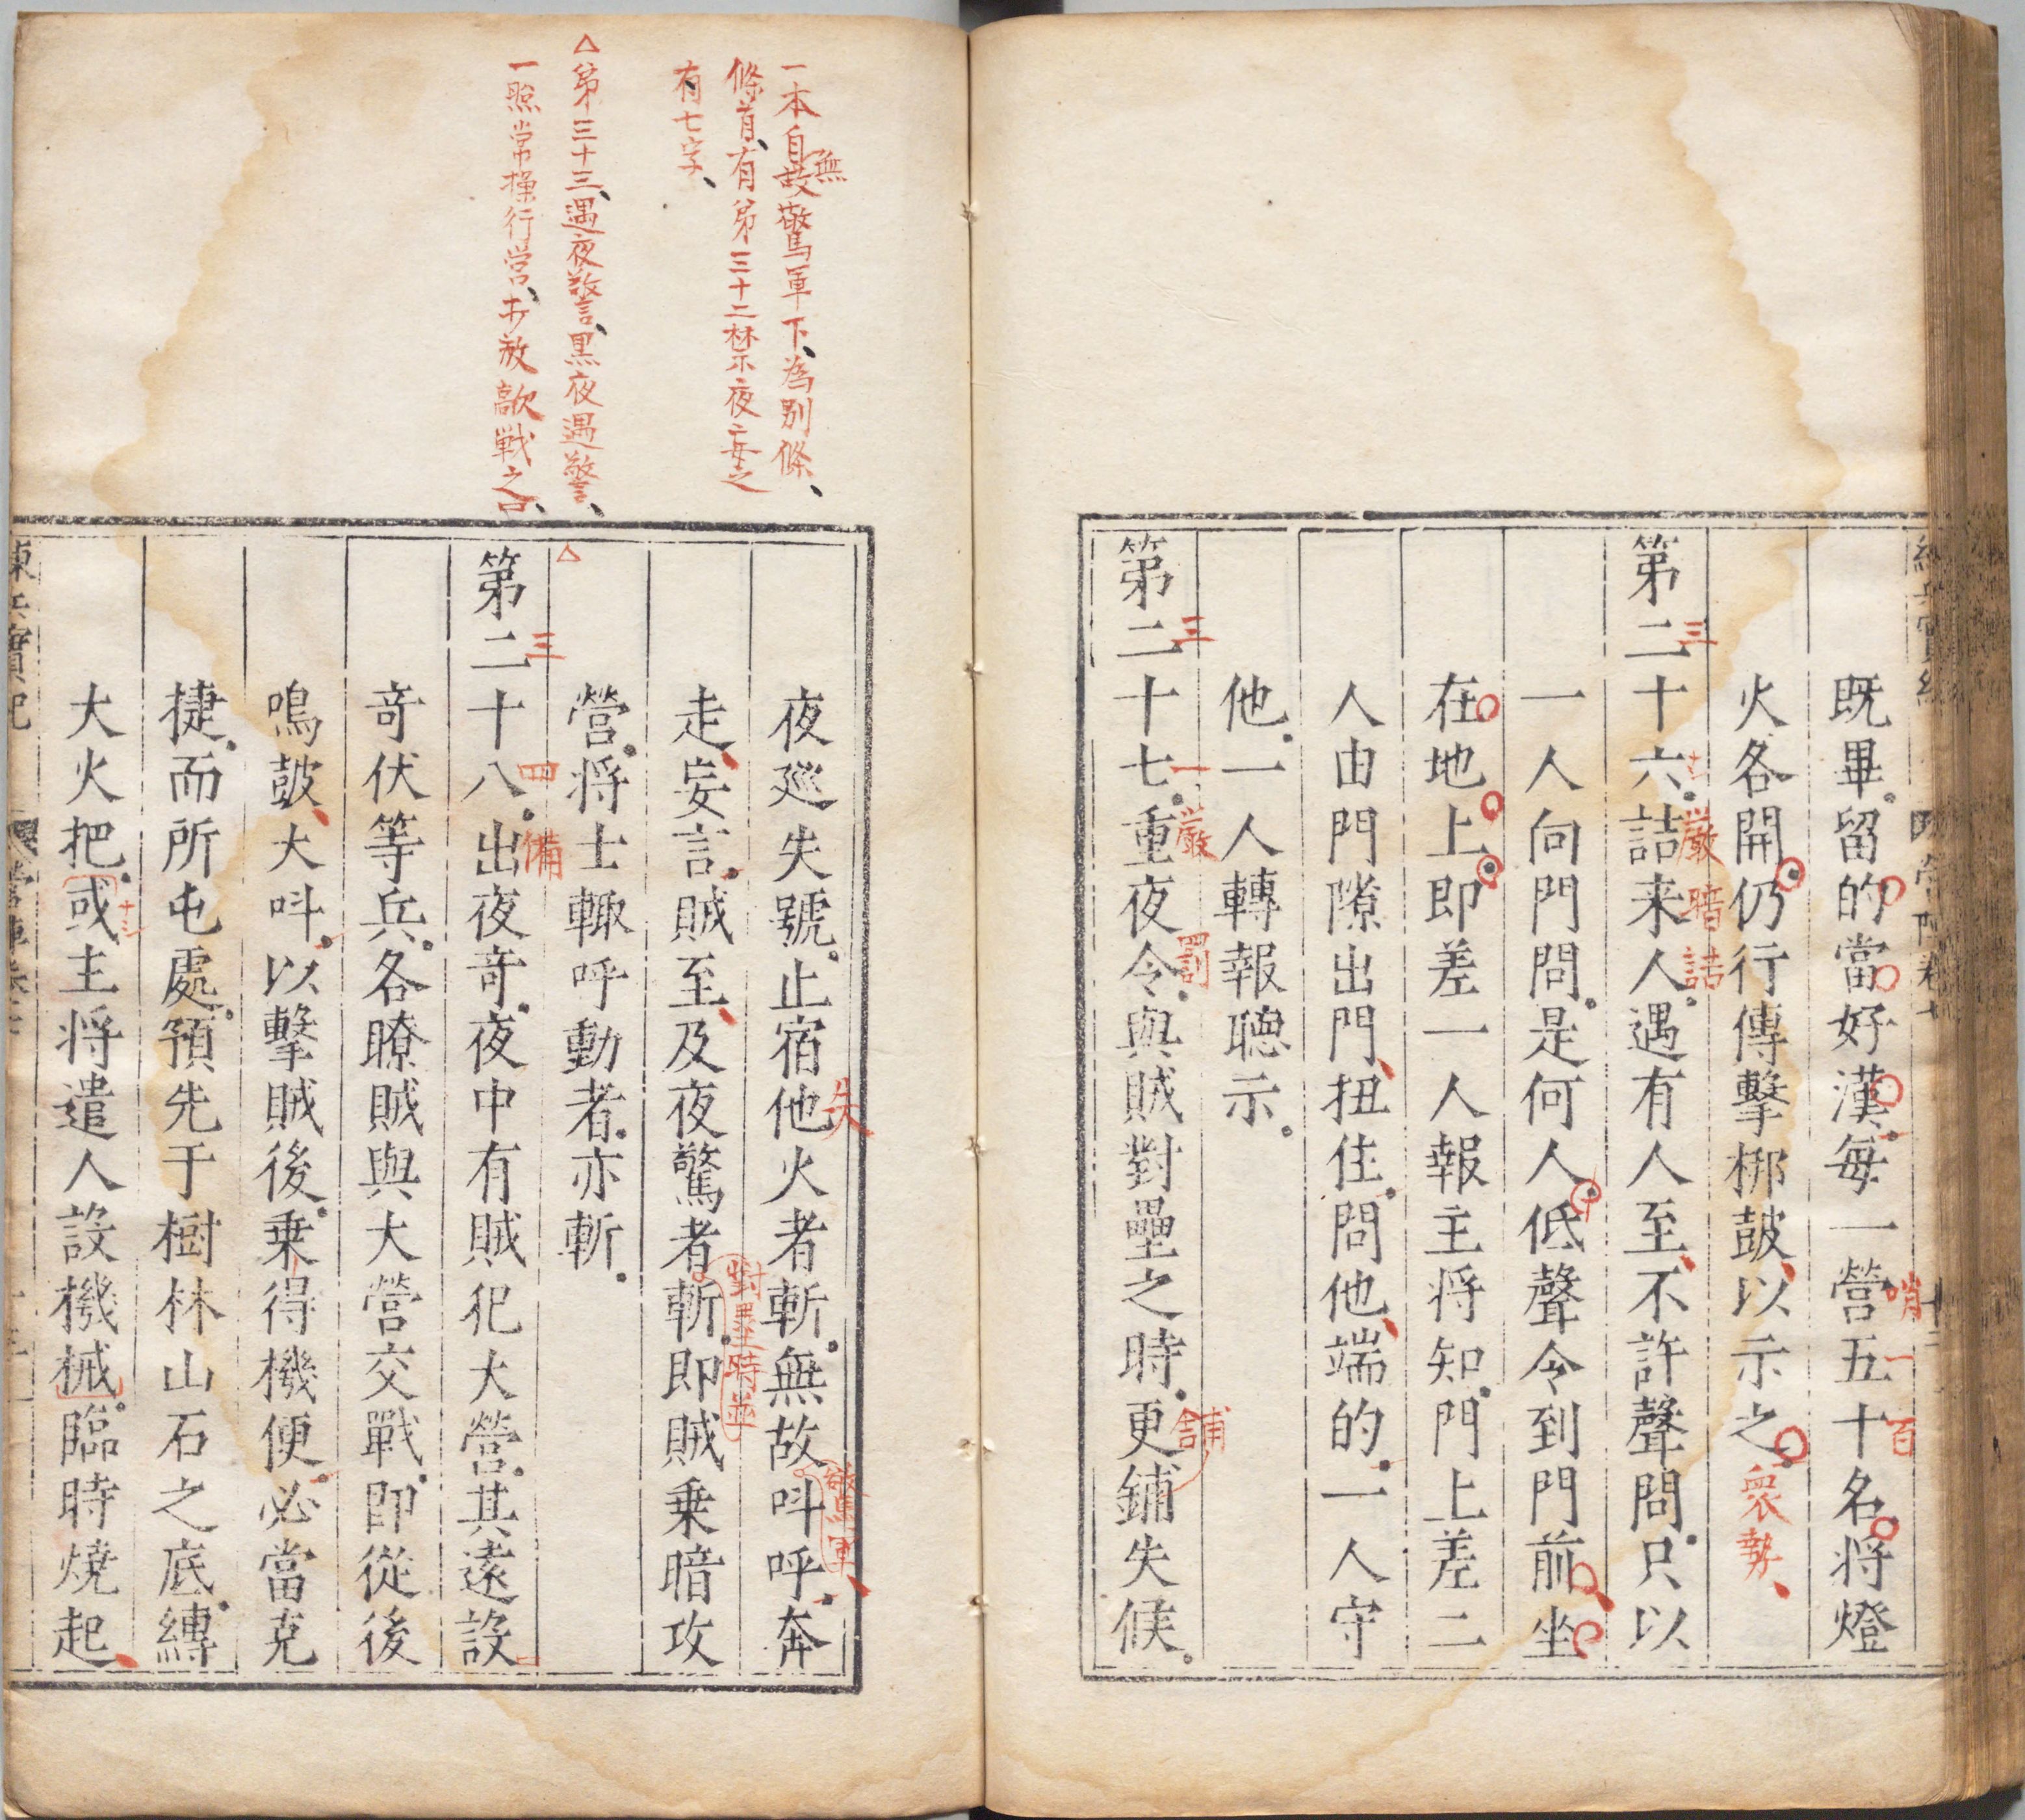 既畢留的當好漢每一營五十名将燈
哨一百
火各開仍行傳擊梆鼓以示之
衆勢
第二十六詰来人遇有人至不許聲問只以
三
嚴暗詰
一人向門問是何人低聲令到門前坐
在地上即差一人報主将知門上差二
人由門隙出門扭住問他端的一人守
他一人轉報聴示
第二十七重夜令與賊對壘之時更鋪失候
三一嚴
四罰
舖
一本自無故驚軍下為別條
條首有第三十二禁示夜妄之
有七字
△第三十三遇夜警黒夜遇警
一照常操行營方放敵戦之
夜廵失號止宿他火者斬無故呌呼奔
失
驚軍
走妄言賊至及夜驚者斬即賊乗暗攻
對壘時並
營将士輙呼動者亦斬
△
第二十八出夜竒夜中有賊犯大營其遠設
三四備
竒伏等兵各瞭賊與大營交戰即從後
鳴鼓大呌以擊賊後乗得機便必當克
捷而所屯處預先于樹林山石之底縳
大火把或主将遣人設機械臨時燒起
十三